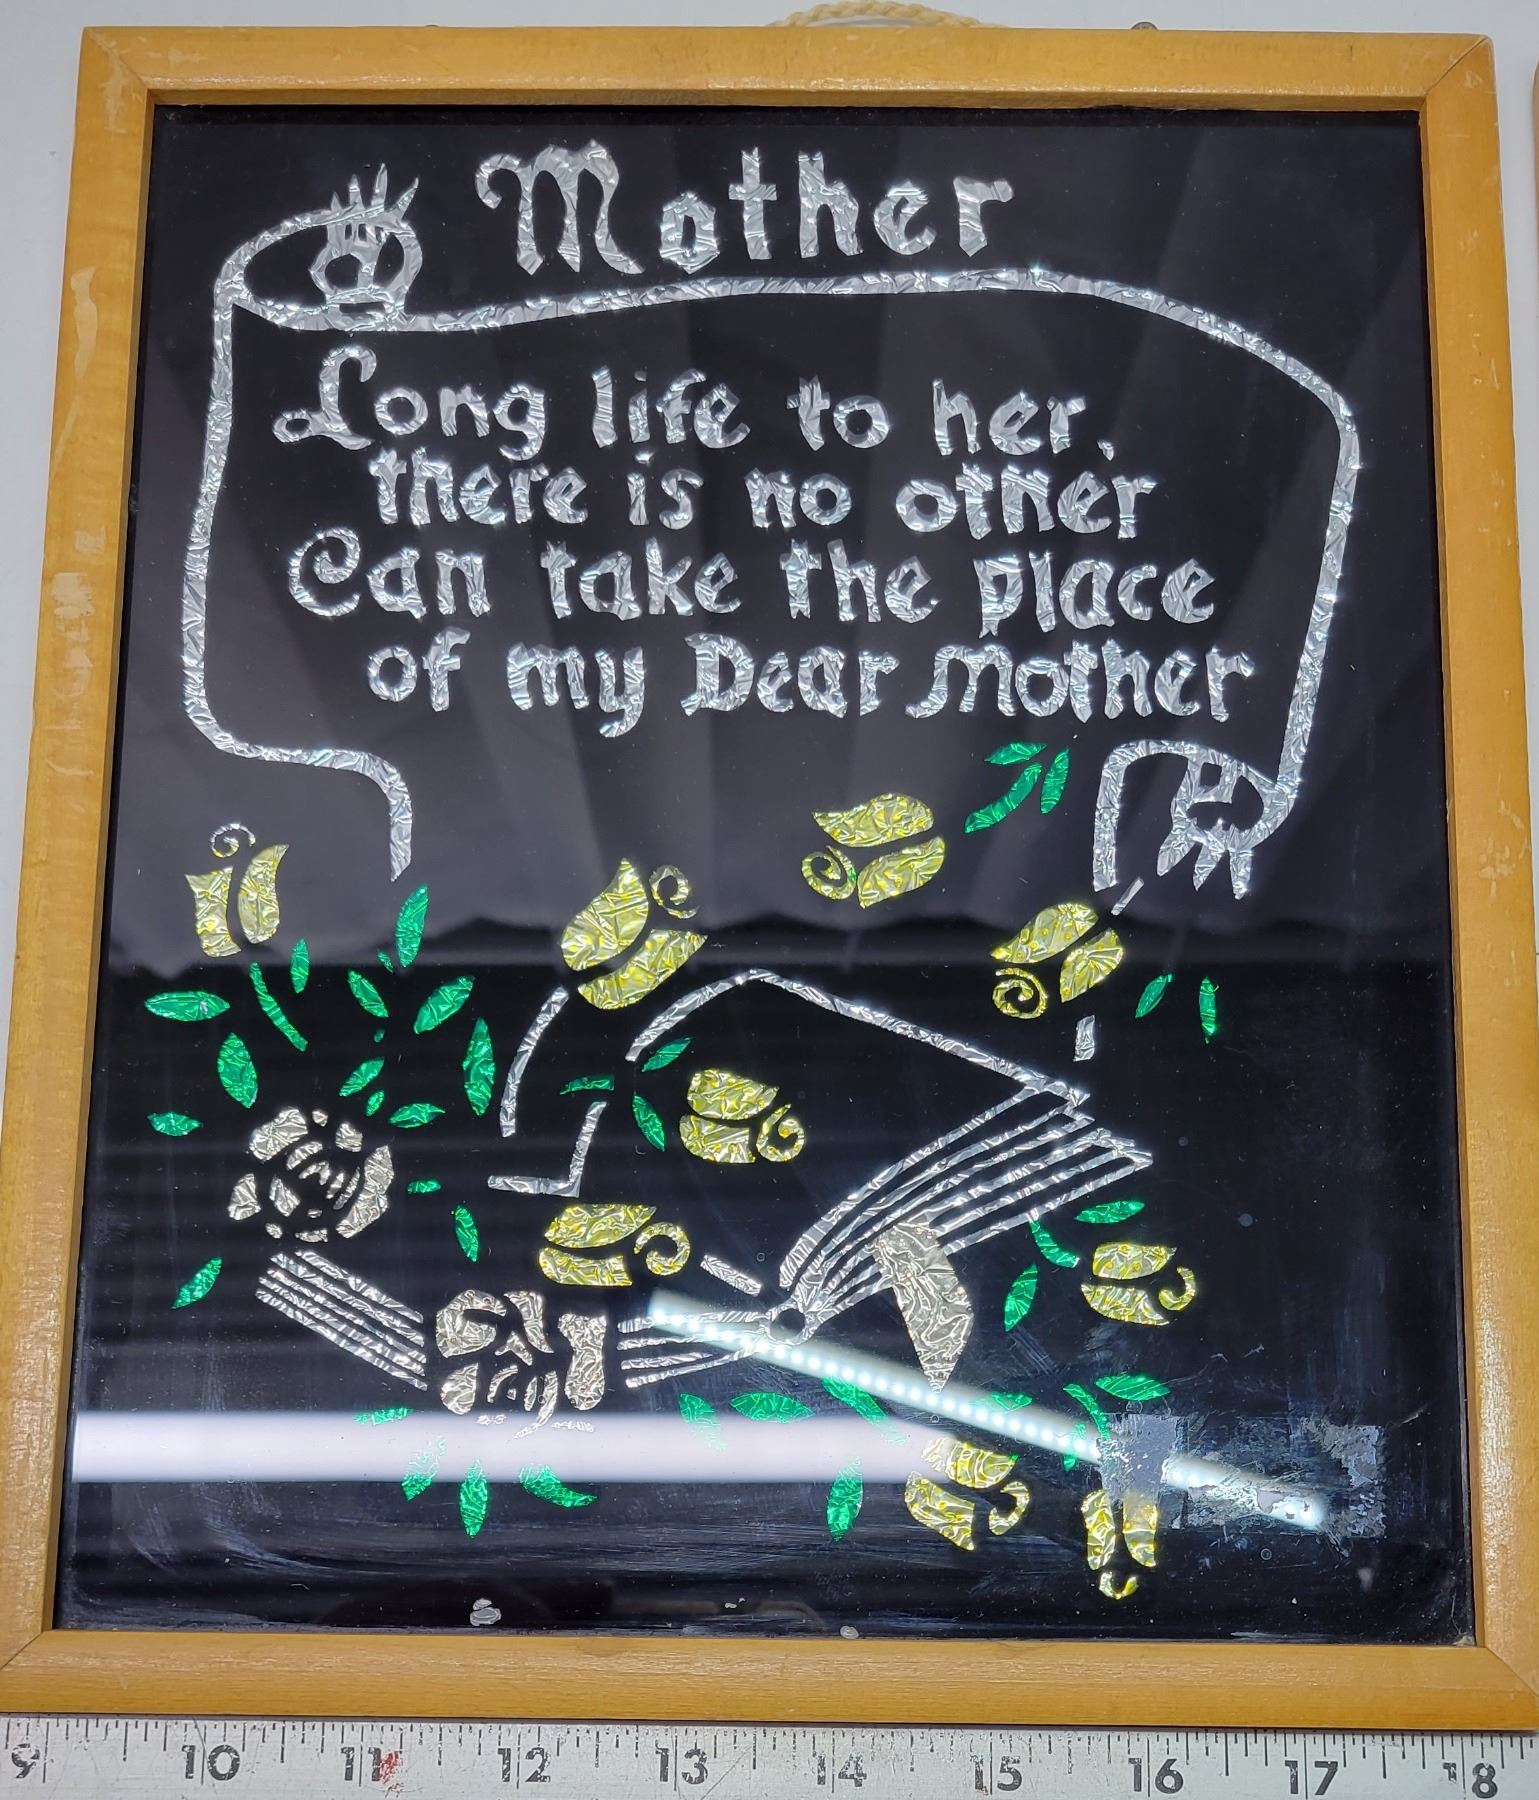 Mother
Long life to her,
there is no other
Can take the place
of my Dear Mother
9 10 11 12 13 14 15 16 17 18